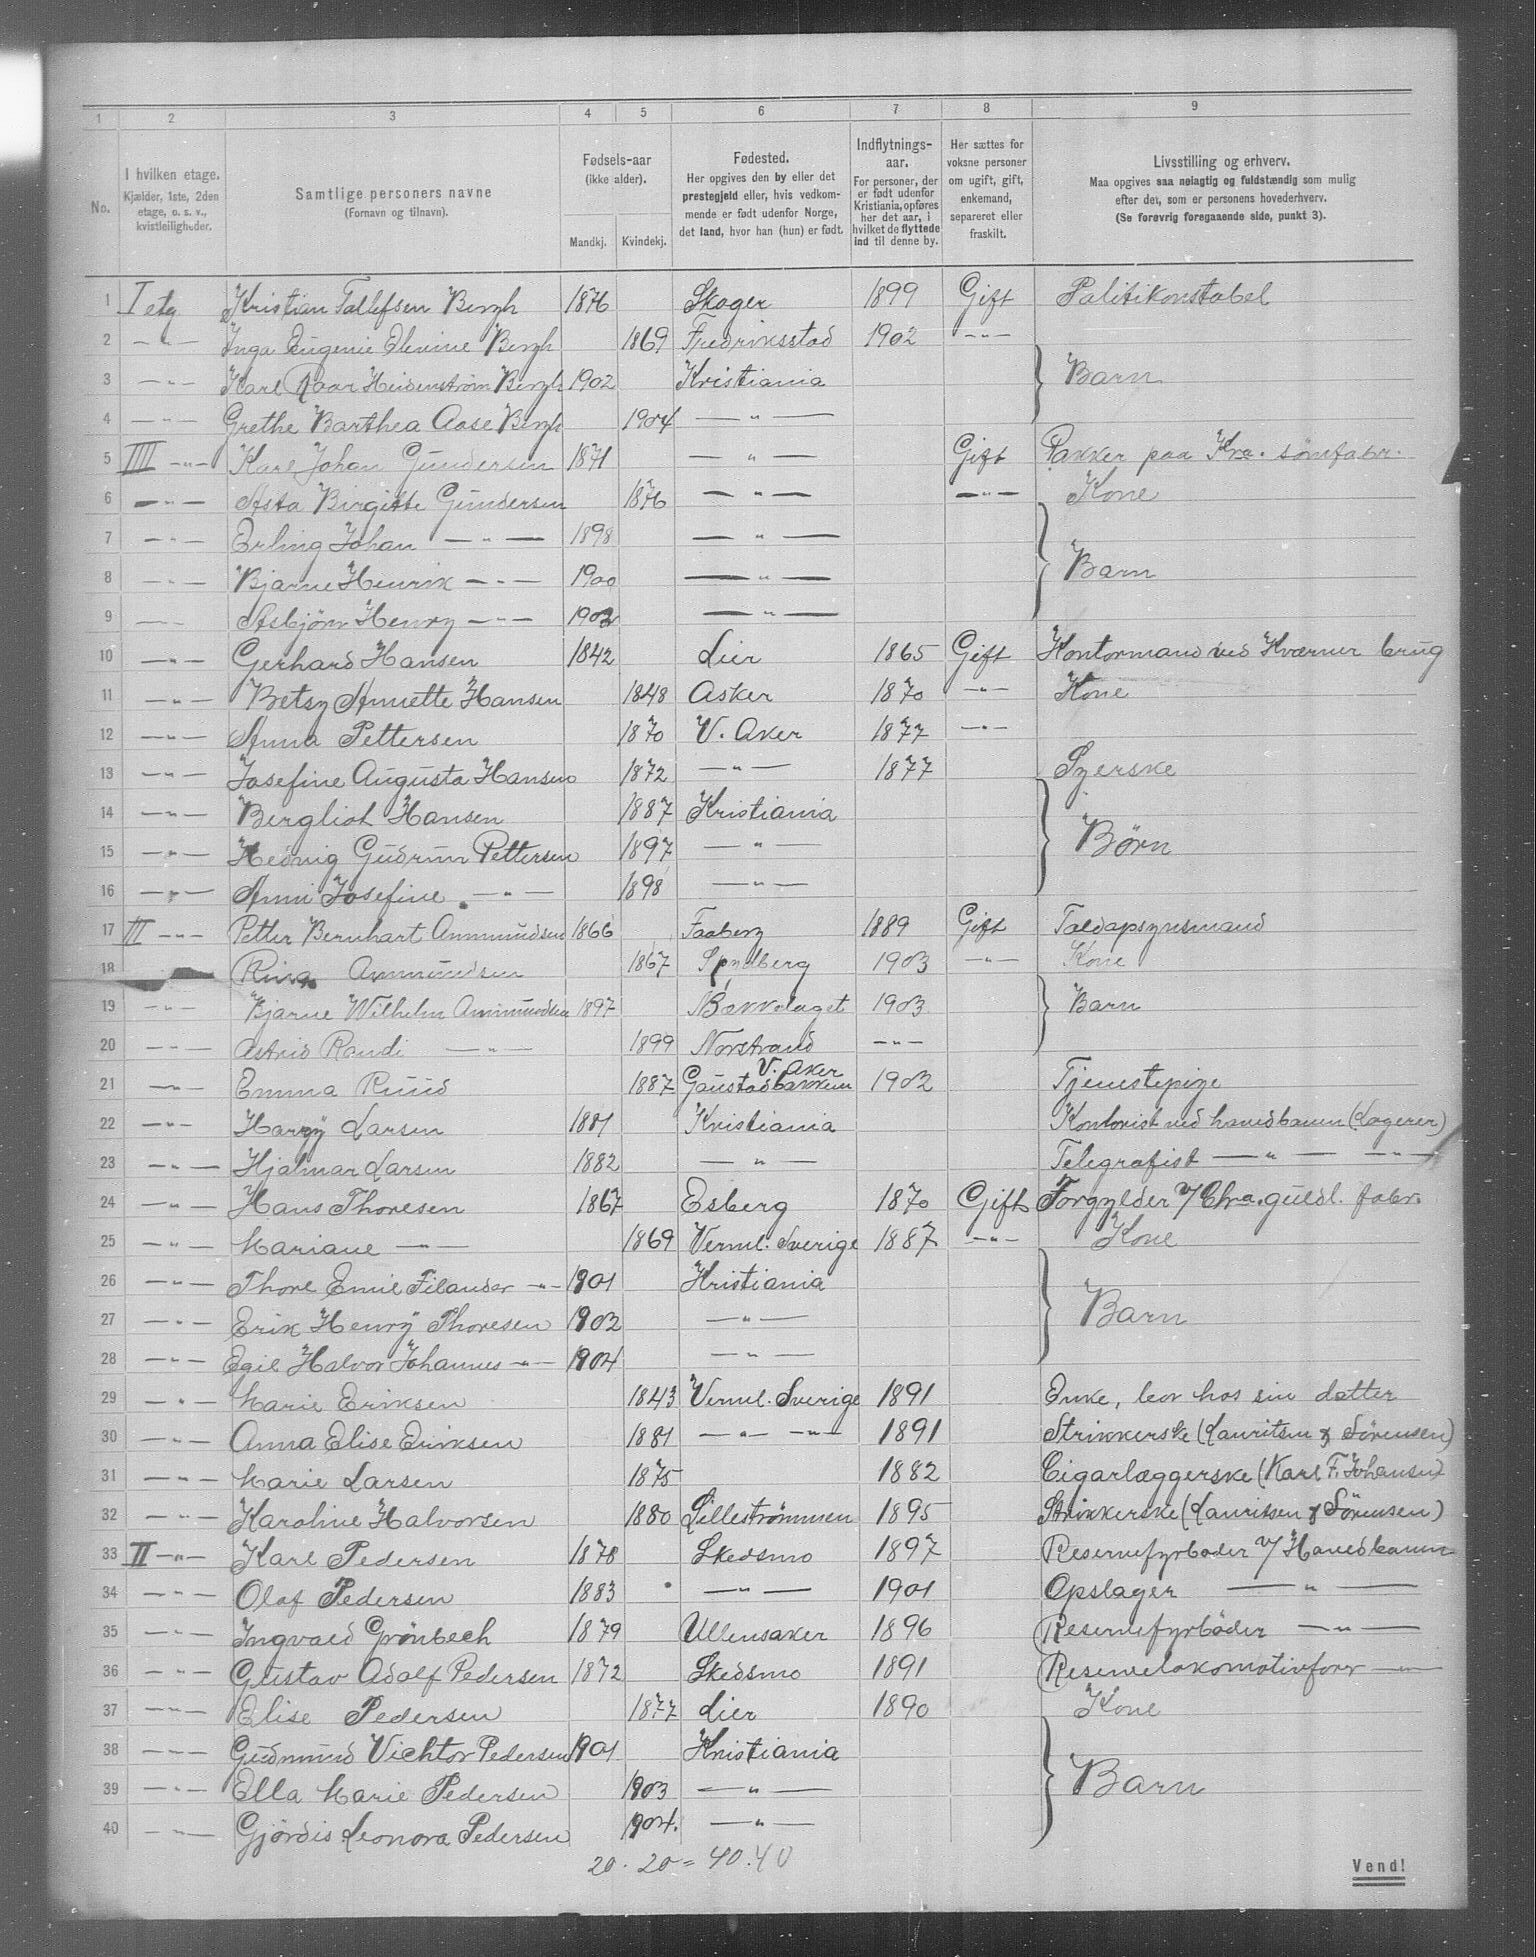 1 2 3 4 5 6 7 8 9
No.
I hvilken etage. Kjælder, 1ste, 2den etage, o. s. v., kvistleiligheder.
Samtlige personers navne (Fornavn og tilnavn).
Fødsels-aar (ikke alder). Mandkj. Kvindekj.
Fødested. Her opgives den by eller det prestegjeld eller, hvis vedkommende er født udenfor Norge, det land, hvor han (hun) er født.
Indflytnings-aar. For personer, der er født udenfor Kristiania, opføres her det aar, i hvilket de flyttede ind til denne by.
Her sættes for voksne personer om ugift, gift, enkemand, separeret eller fraskilt.
Livsstilling og erhverv. Maa opgives saa nøiagtig og fuldstændig som mulig efter det, som er personens hovederhverv. (Se forøvrig foregaaende side, punkt 3).
1 I etg Kristian Tallefsen Bergh 1876 Skoger 1899 Gift Politikonstabel
2 — " — Inga Eugenie Olevine Bergh 1869 Fredriksstad 1902 — " —
3 — " — Karl Roar Heidenstrøm Bergh 1902 Kristiania Barn
4 — " — Grethe Barthea Aase Bergh 1904 — " —
5 III — " — Karl Johan Gundersen 1871 — " — Gift Pakker paa Kra. sømfabr.
6 — " — Asta Birgitte Gundersen 1876 — " — — " — Kone
7 — " — Erling Johan — " — 1898 — " —
8 — " — Bjarne Henrik — " — 1900 — " — Barn
9 — " — Asbjörn Henry — " — 1902 — " —
10 — " — Gerhard Hansen 1842 Lier 1865 Gift Kontormand ved Kværner brug
11 — " — Betsy Annette Hansen 1848 Asker 1870 — " — Kone
12 — " — Anna Pettersen 1870 V. Aker 1877 — " —
13 — " — Josefine Augusta Hansen 1872 — " — 1877 Syerske
14 — " — Bergliot Hansen 1887 Kristiania
15 — " — Hedvig Gudrun Pettersen 1897 — " — Børn
16 — " — Anni Josefine — " — 1898 — " —
17 III — " — Petter Bernhart Ammundsen 1866 Faaberg 1889 Gift Toldopsynsmand
18 Rina Ammundsen 1867 Spydberg 1903 — " — Kone
19 — " — Bjarne Wilhelm Ammundsen 1897 Bækkelaget 1903 Barn
20 — " — Astrid Randi — " — 1899 Norstrand — " —
21 — " — Emma Ruud 1887 Gaustadbakken V. Aker 1902 Tjenestepige
22 — " — Harry Larsen 1881 Kristiania Kontorist ved hovedbanen (Lagerer)
23 — " — Hjalmar Larsen 1882 — " — Telegrafist — " — — " —
24 — " — Hans Thoresen 1867 Esberg 1870 Gift Forgylder v/ Chra. guldl. fabr.
25 — " — Mariane — " — 1869 Verml. Sverige 1887 — " — Kone
26 — " — Thore Emil Filander — " — 1901 Kristiania
27 — " — Erik Henry Thoresen 1902 — " — Barn
28 — " — Egil Halvor Johannes — " — 1904 — " —
29 — " — Marie Eriksen 1843 Verml. Sverige 1891 Enke, bor hos sin datter
30 — " — Anna Elise Eriksen 1881 — " — — " — 1891 Strikkerske (Lauritsen & Sörensen)
31 — " — Marie Larsen 1875 1882 Cigarlæggerske (Karl F. Johansen)
32 — " — Karoline Halvorsen 1880 Lilleströmmen 1895 Strikkerske (Lauritsen & Sörensen)
33 II — " — Karl Pedersen 1878 Skedsmo 1897 Reservefyrbøder v/ Hovedbanen
34 — " — Olaf Pedersen 1883 — " — 1901 Opslager — " —
35 — " — Ingvald Grönbech 1879 Ullensaker 1896 Reservefyrböder — " —
36 — " — Gustav Adolf Pedersen 1872 Skedsmo 1891 Reservelokomotivförer — " —
37 — " — Elise Pedersen 1877 Lier 1890 Kone
38 — " — Gudmund Vichtor Pedersen 1901 Kristiania
39 — " — Ella Marie Pedersen 1903 — " — Barn
40 — " — Gjördis Leonora Pedersen 1904. — " —
20 . 20 = 40 . 40
Vend!